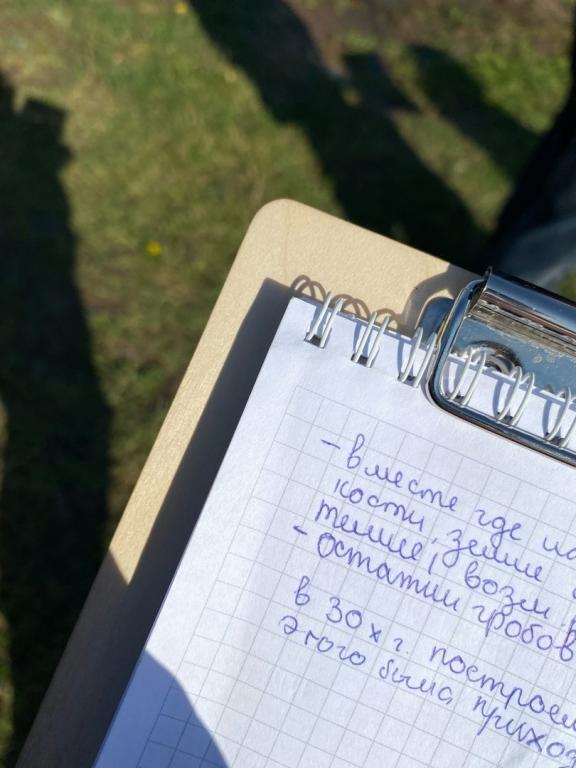 - в месте где на
кости, земле
темнее, возм.
- остатки гробов
в 30х г. построен
этого была приход